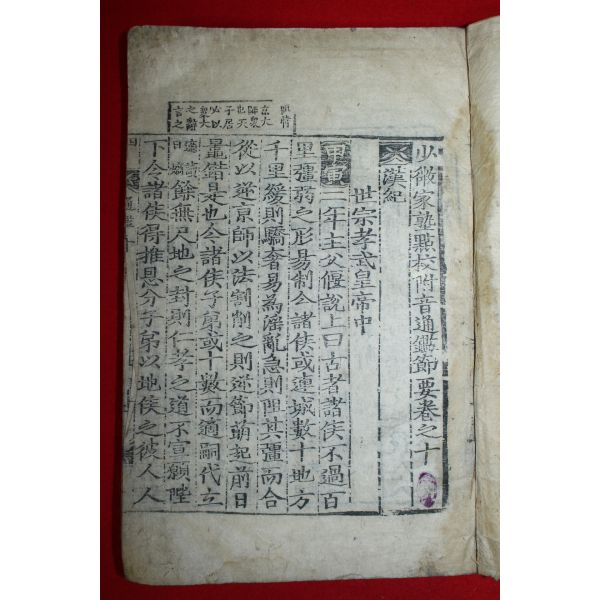 京大
師衆
也天
子居
必以
衆大
之辭
言之
少微家塾點校附音通鑑節要卷之十
漢紀
世宗孝武皇帝中
甲寅二年主父偃說上曰古者諸侯不過百
里彊弱之形易制今諸侯或連城數十地方
千里緩則驕奢易為淫亂急則阻其彊而合
從以逆京師以法割削之則逆節萌起前日
鼂錯是也今諸侯子弟或十數而適嗣代立
適讀曰嫡餘無尺地之封則仁孝之道不宣願陛
下令諸侯得推恩分子弟以地侯之彼人人
通鑑